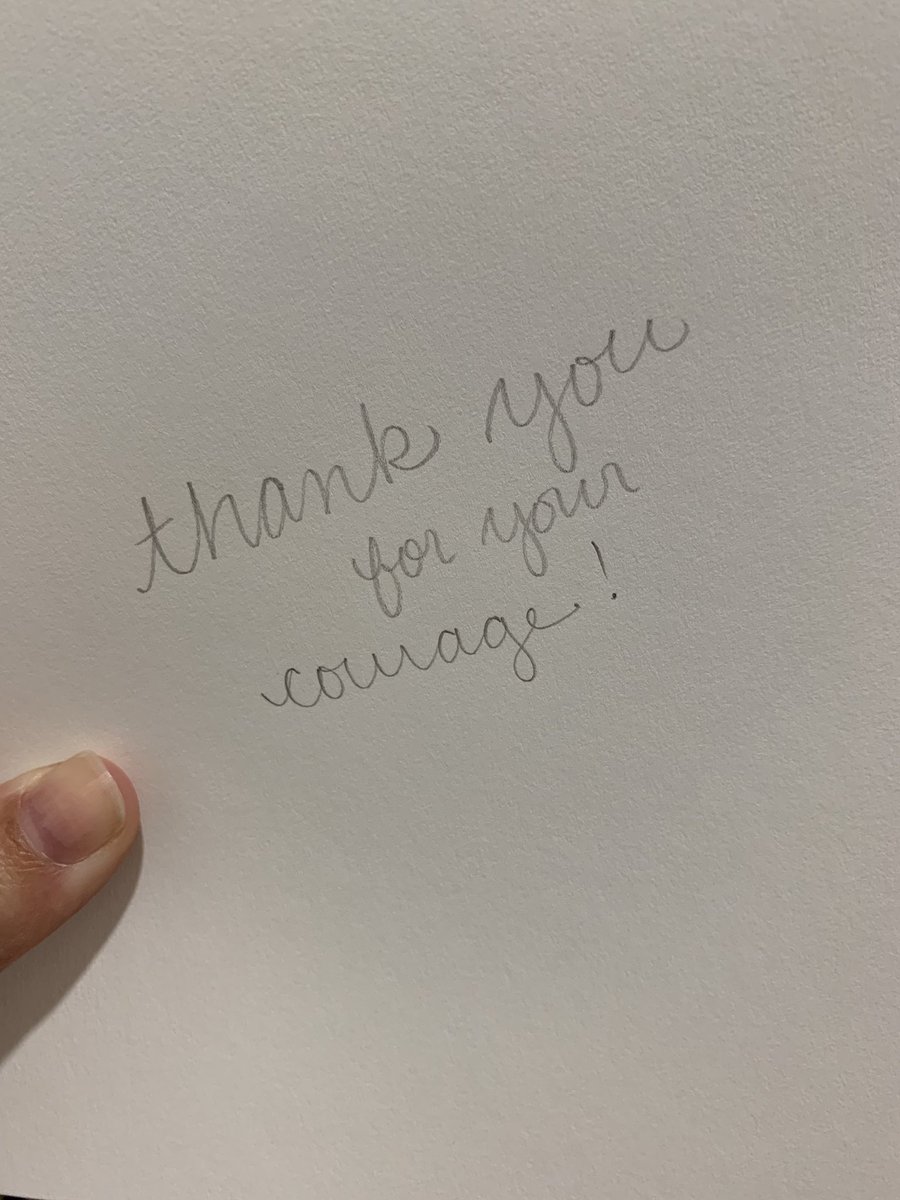 thank you
for your
courage!